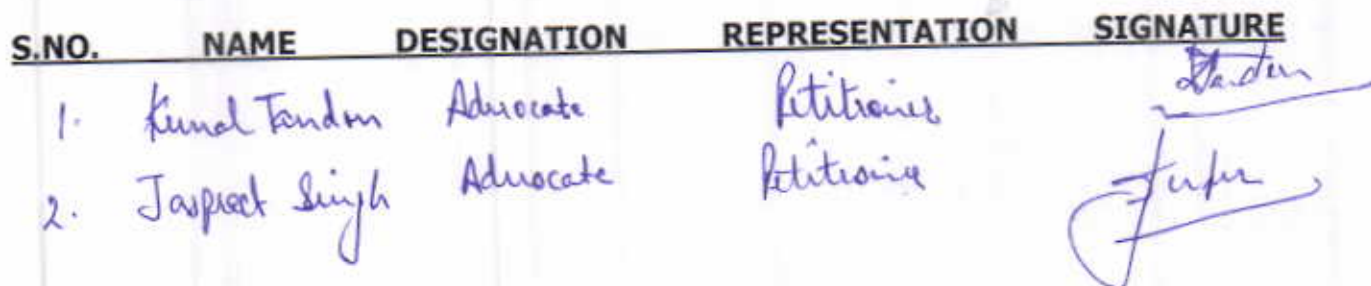 S.NO. NAME DESIGNATION REPRESENTATION SIGNATURE
1. Kunal Tandon Advocate Petitioner Tandon
2. Jaspreet Singh Advocate Petitioner